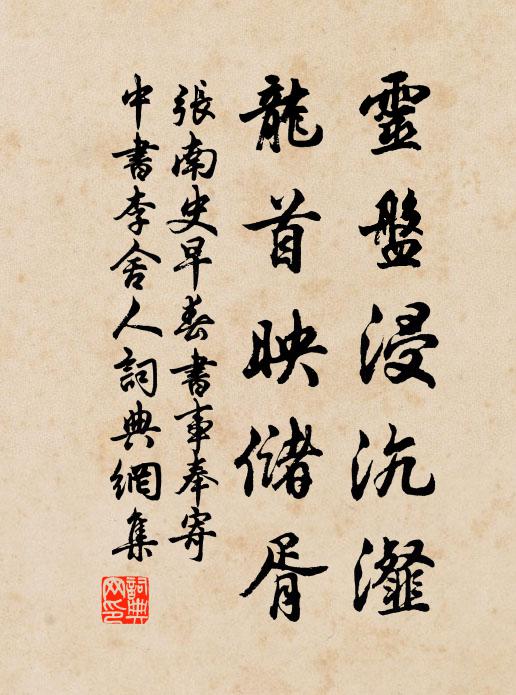 靈盤浸沆瀣
龍首映儲胥
張南史早春書事奉寄
中書李舍人詞典網集
詞典网印